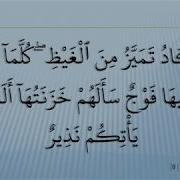 ـَادُ تَمَيَّزُ مِنَ ٱلْغَيْظِ ۖ كُلَّمَآ
ـيهَا فَوْجٌ سَأَلَهُمْ خَزَنَتُهَآ أَلَـ
يَأْتِكُمْ نَذِيرٌ